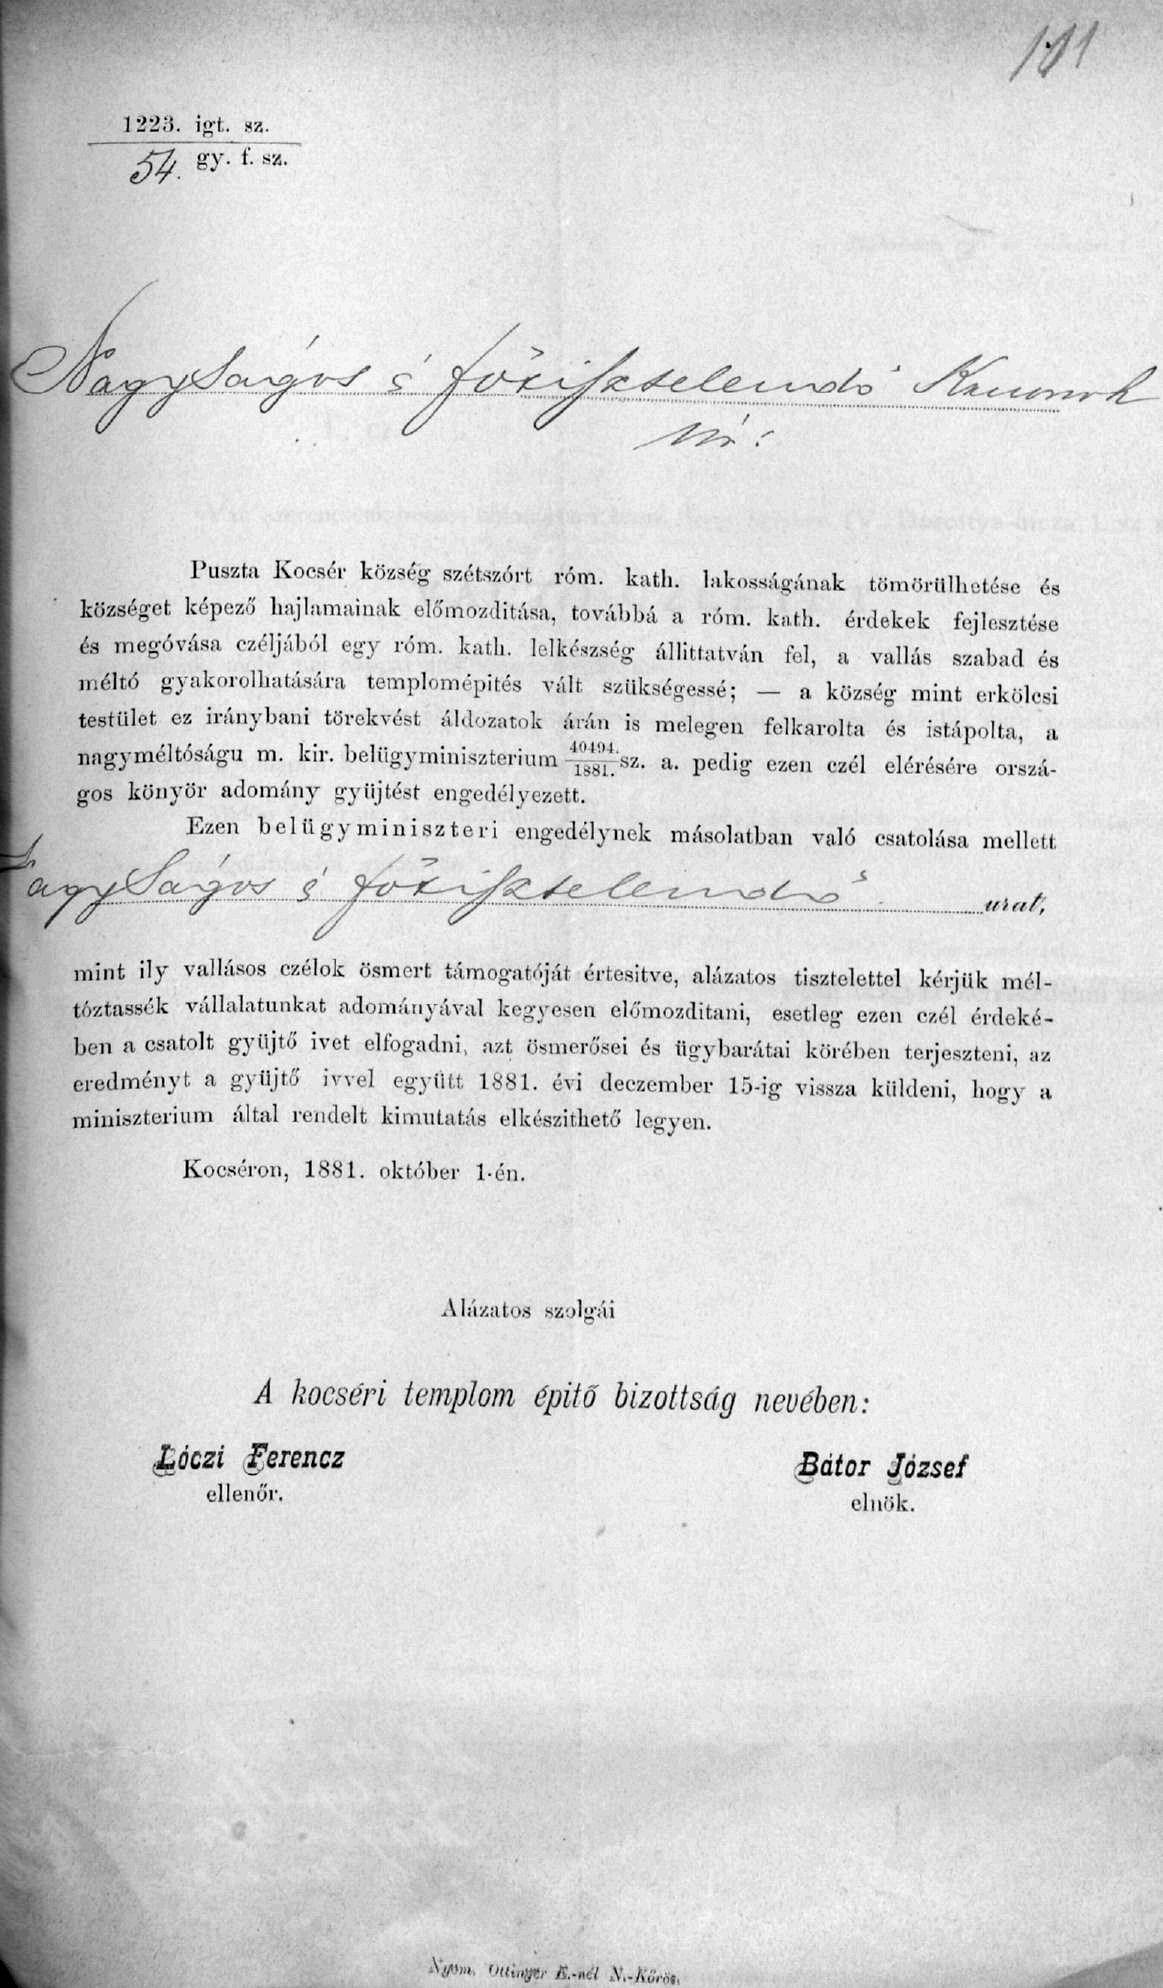 101
1223. igt. sz.
54. gy. f. sz.
Nagyságos és főtisztelendő Kanonok
Úr!
Puszta Kocsér község szétszórt róm. kath. lakosságának tömörülhetése és
községet képező hajlamainak előmozditása, továbbá a róm. kath. érdekek fejlesztése
és megóvása czéljából egy róm. kath. lelkészség állittatván fel, a vallás szabad és
méltó gyakorolhatására templomépités vált szükségessé; — a község mint erkölcsi
testület ez iránybani törekvést áldozatok árán is melegen felkarolta és istápolta, a
nagyméltóságu m. kir. belügyminiszterium 40494./1881. sz. a. pedig ezen czél elérésére orszá-
gos könyör adomány gyüjtést engedélyezett.
Ezen belügyminiszteri engedélynek másolatban való csatolása mellett
Nagyságos és főtisztelendő urat,
mint ily vallásos czélok ösmert támogatóját értesitve, alázatos tisztelettel kérjük mél-
tóztassék vállalatunkat adományával kegyesen előmozditani, esetleg ezen czél érdeké-
ben a csatolt gyüjtő ivet elfogadni, azt ösmerősei és ügybarátai körében terjeszteni, az
eredményt a gyüjtő ivvel együtt 1881. évi deczember 15-ig vissza küldeni, hogy a
miniszterium által rendelt kimutatás elkészithető legyen.
Kocséron, 1881. október 1-én.
Alázatos szolgái
A kocséri templom épitő bizottság nevében:
Lóczi Ferencz
ellenőr.
Bátor József
elnök.
Nyom. Ottinger E.-nél N.-Kőrös.